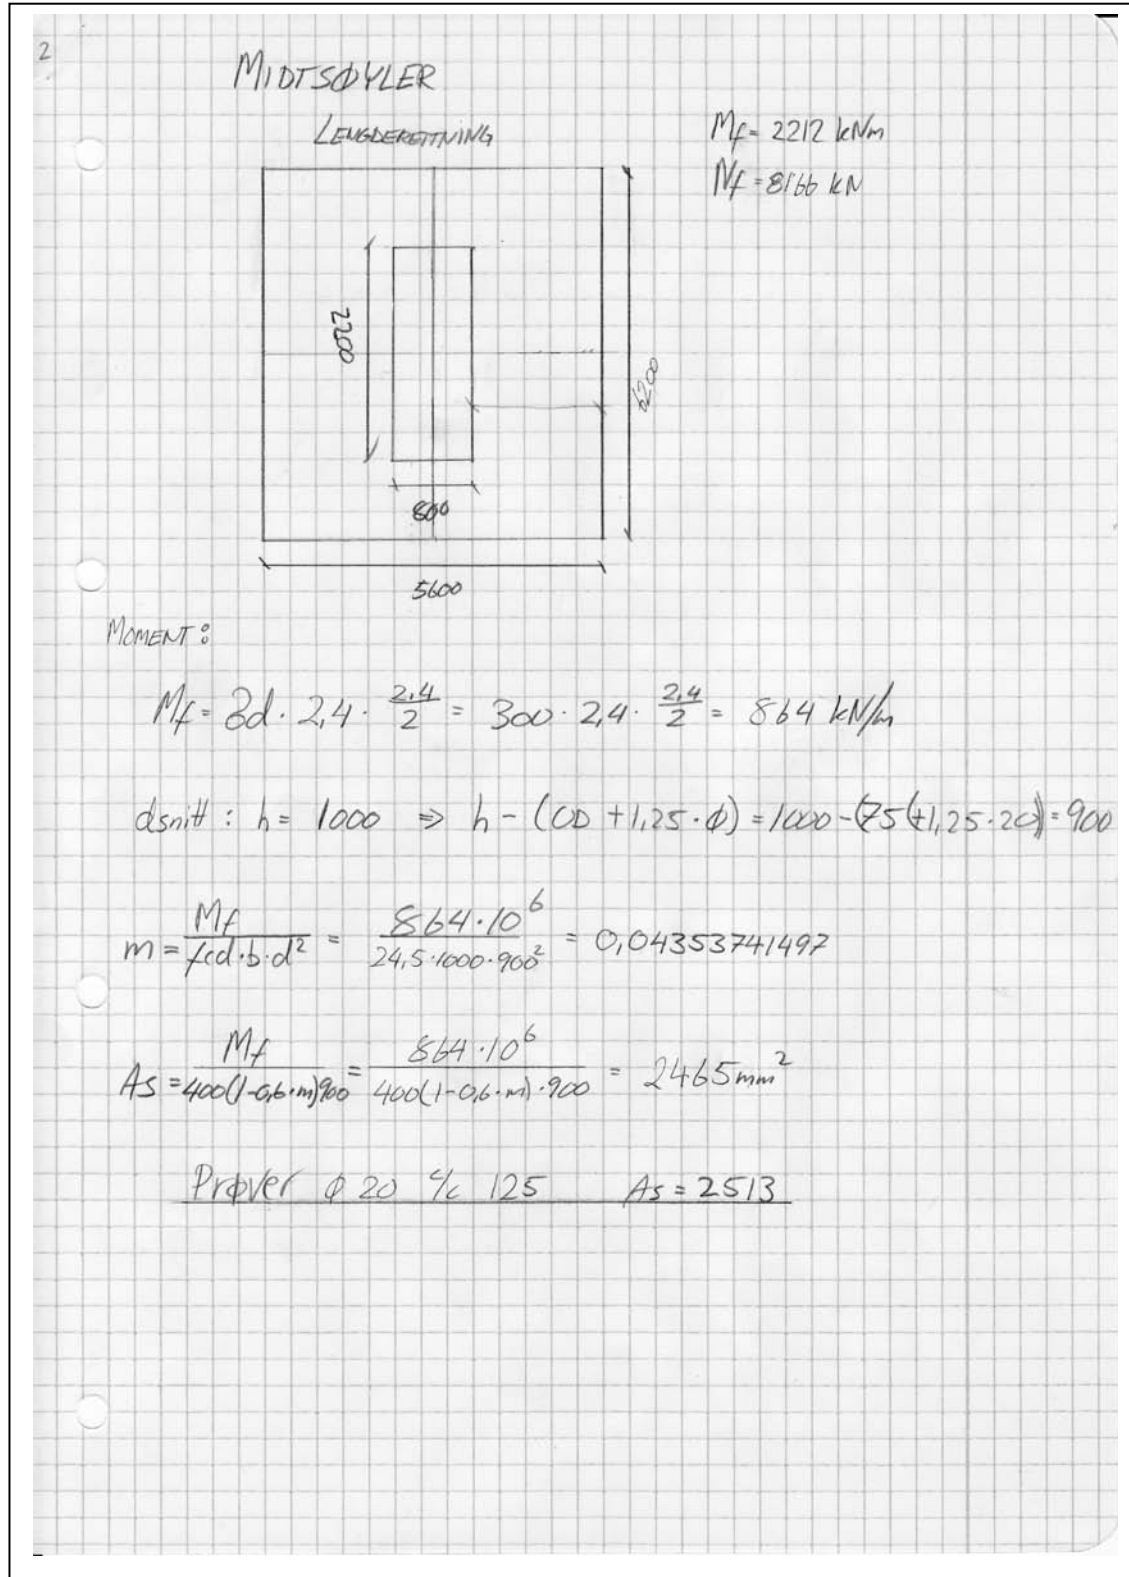 2
MIDTSØYLER
LENGDERETNING
Mf = 2212 kNm
Nf = 8166 kN
2200
6200
800
5600
MOMENT:
Mf = ∂d · 2,4 · 2,4/2 = 300 · 2,4 · 2,4/2 = 864 kN/m
dsnitt : h = 1000 ⇒ h - (CD + 1,25 · ϕ) = 1000 - (75 (+1,25 · 20)) = 900
m = Mf/fcd·b·d² = 864·10⁶/24,5·1000·900² = 0,04353741497
As = Mf/400(1-0,6·m)900 = 864·10⁶/400(1-0,6·m)·900 = 2465 mm²
Prøver ϕ 20 c/c 125 As = 2513